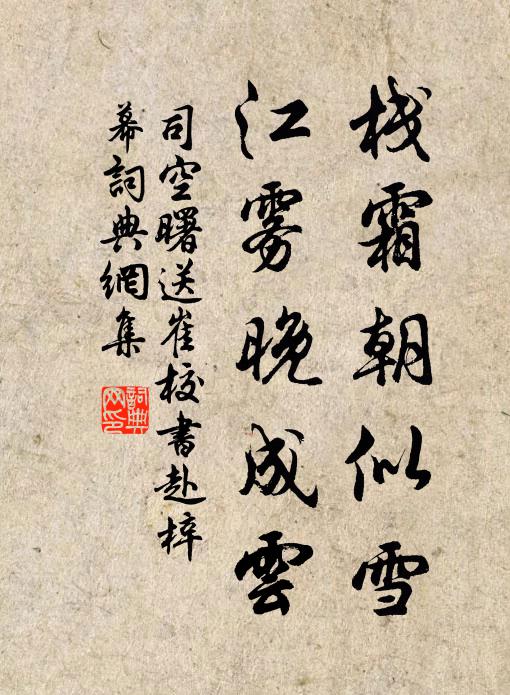 栈霜朝似雪
江雾晚成雲
司空曙送崔校書赴梓
幕詞典網集
詞典
网印